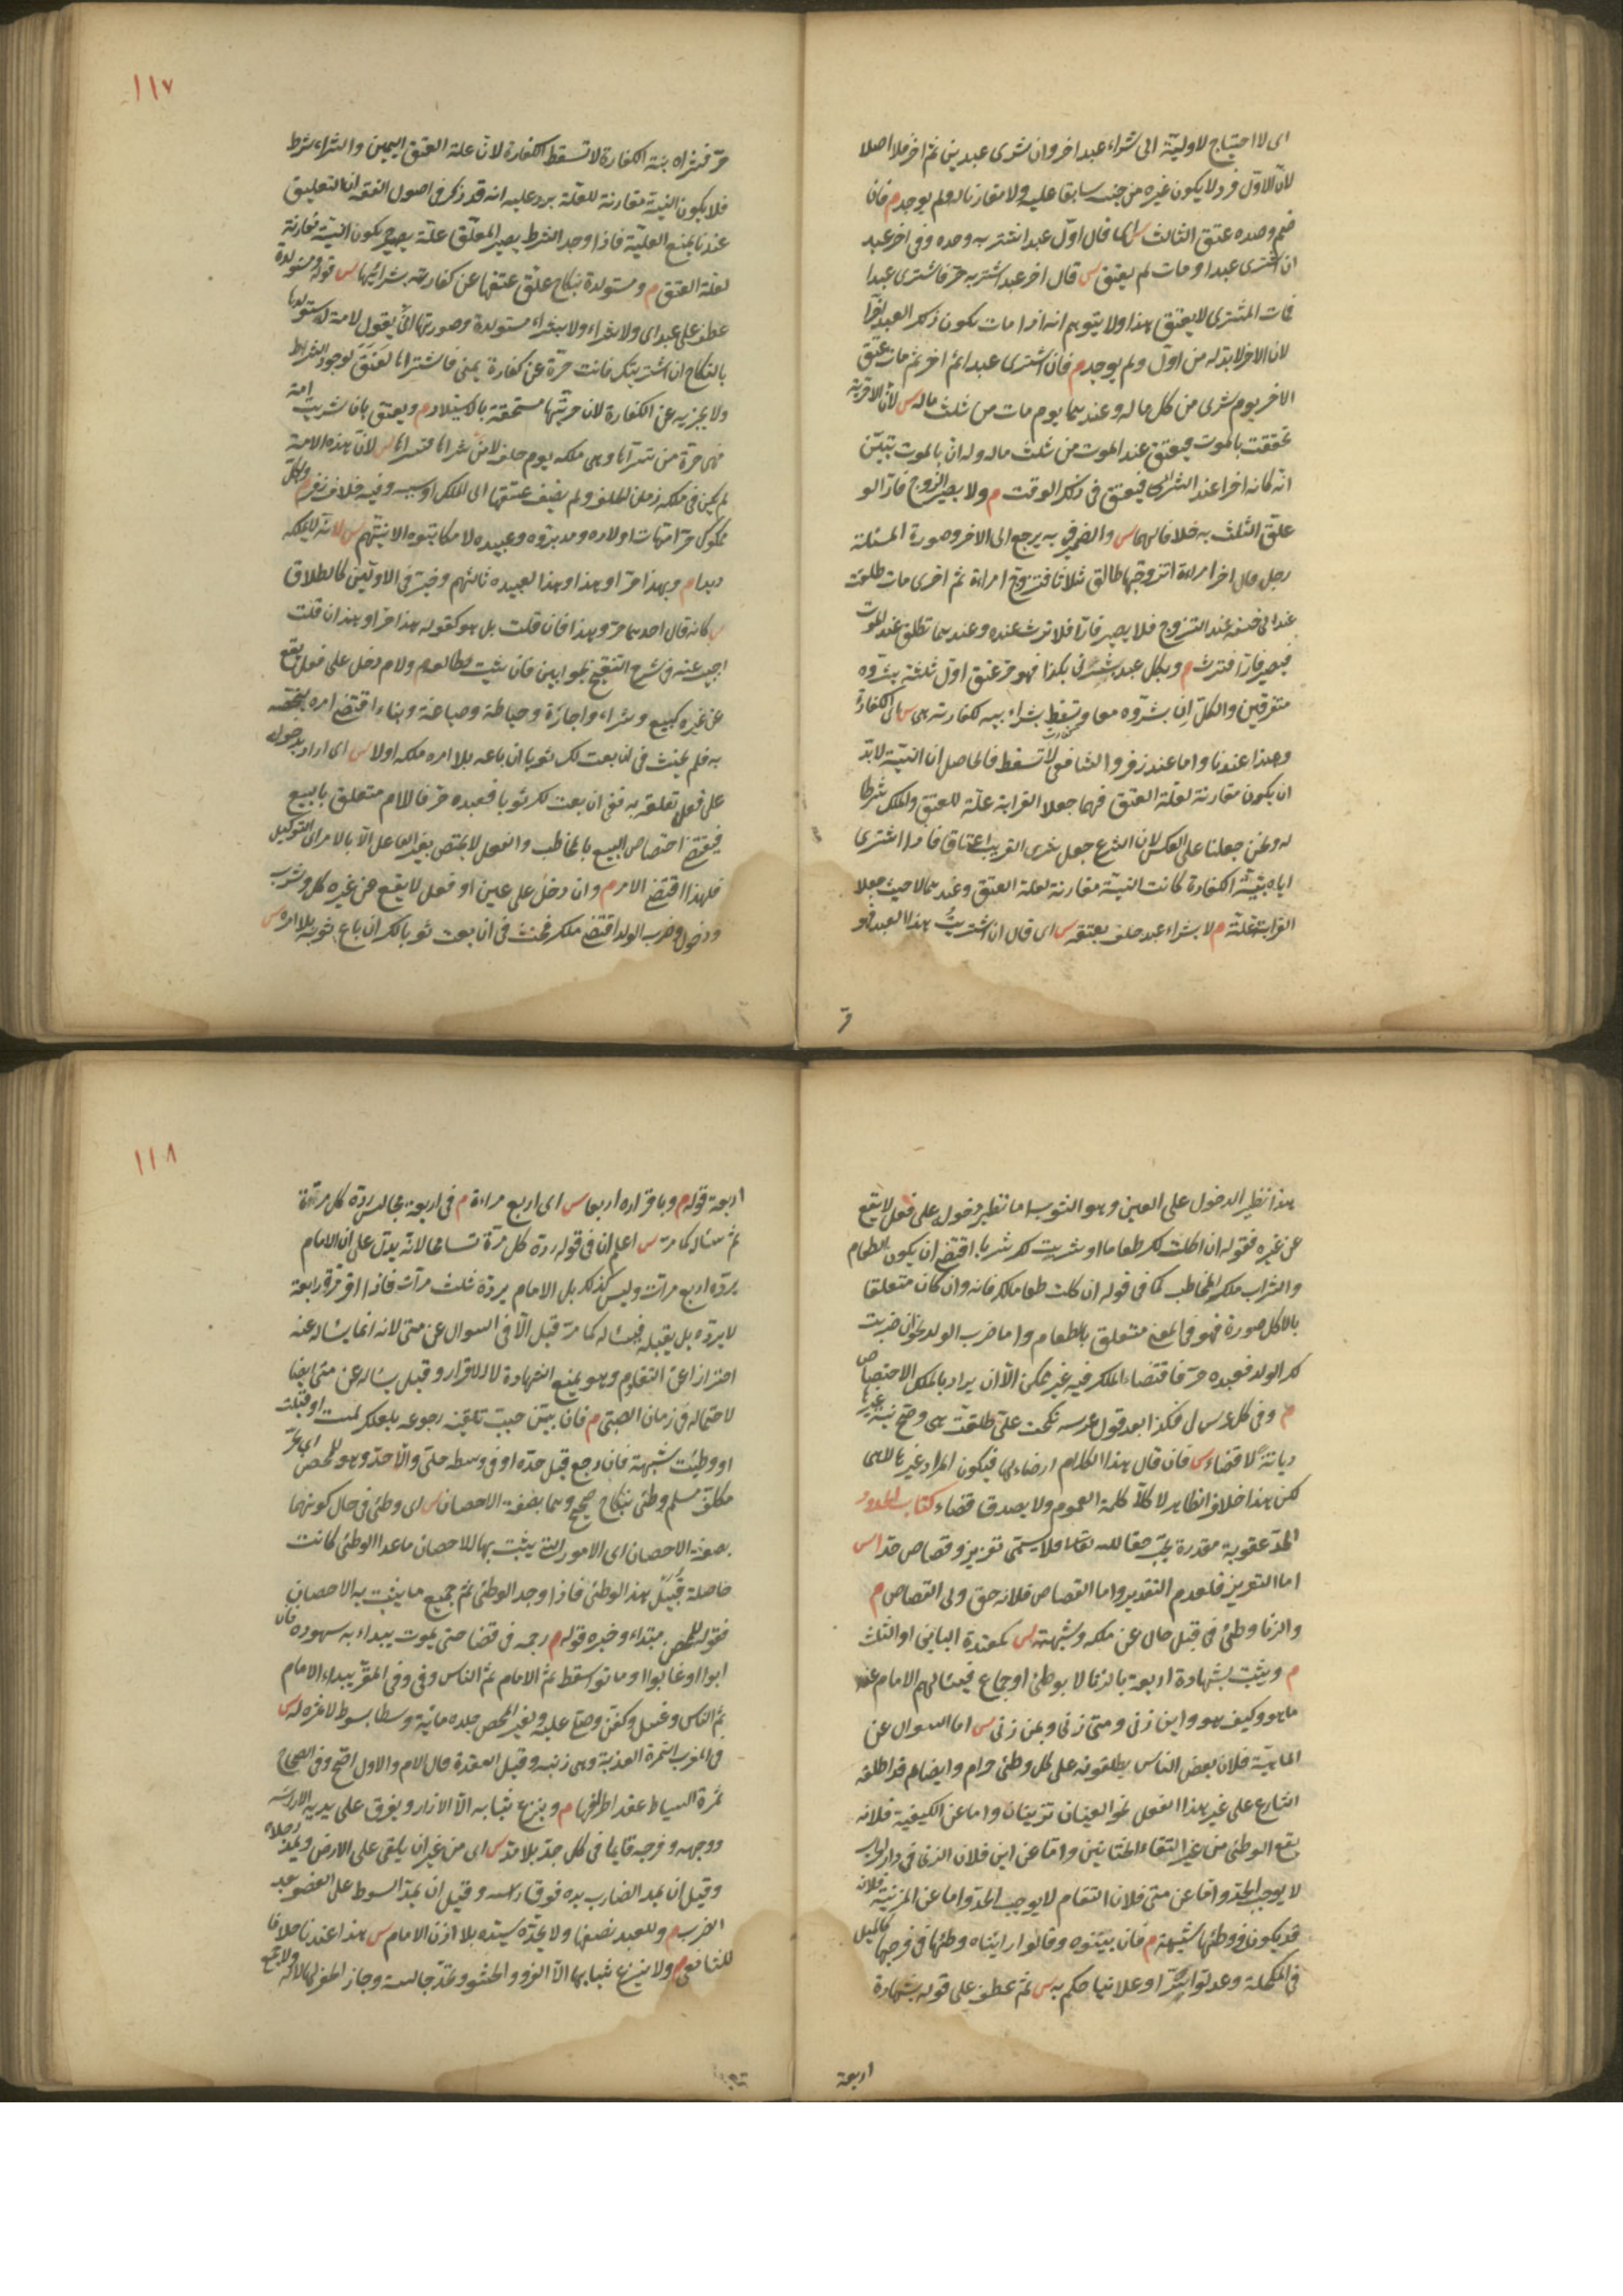 اى لا احتياج لاوليته الى شراء عبد اخر وان شرى عبدين ثم اخر فلا اصلا
لان الاول فرد لا يكون غيره من جنسه سابقا عليه ولا مقارنا له ولم يوجد م فان
ضم وحده عتق الثالث س اى قال اول عبد اشتريه وحده وفى اخر عبد
ان اشترى عبدا ومات لم يعتق س قال اخر عبد اشتريه حر فاشترى عبدا
فمات المشترى لا يعتق هذا ولا يتوهم انه اذا مات يكون ذلك العبد اخرا
لان الاخر لا بد له من اول ولم يوجد م فان اشترى عبدا ثم اخر ثم مات عتق
الاخر يوم شرى من كل ماله وعندهما يوم مات من ثلث ماله س لان الاخرية
تحققت بالموت فيعتق عند الموت من ثلث ماله وله ان بالموت يتبين
انه كان اخرا عند الشراء فيعتق فى ذلك الوقت م ولا يصير الزوج فارا لو
علق الثلث به خلافا لهما س والضمير فى به يرجع الى الاخر وصورة المسئلة
رجل قال اخر امراءة اتزوجها طالق ثلاثا فتزوج امراءة ثم اخرى مات طلقت
عند ابى حنيفة عند التزوج فلا يصير فارا فلا ترث عنده وعندهما تطلق عند الموت
فيصير فارا فترث م وبكل عبد بشرنى بكذا فهو حر عتق اول ثلثة بشروه
متفرقين والكل ان بشروه معا وتسقط بشراء ابيه لكفارته هى س اى الكفارة
وهذا عندنا واما عند زفر والشافعى لا تسقط فالحاصل ان النية لا بد
ان يكون مقارنة لعلة العتق فهما جعلا القرابة علة للعتق والملك شرطا
له ونحن جعلنا على العكس لان الشرع جعل شرى القريب اعتاقا فاذا اشترى
اياه بنية الكفارة كانت النية مقارنة لعلة العتق وعندهما لا حيث جعلا
القرابة علة م لا بشراء عبد حلف بعتقه س اى قال ان اشتريت هذا العبد فهو
حر
١١٧
حر فشراه بنية الكفارة لا تسقط الكفارة لان علة العتق اليمين والشراء شرط
فلا يكون النية مقارنة للعلة يرد عليه انه قد ذكر فى اصول الفقه ان التعليق
عندنا يمنع العلية فاذا وجد الشرط يصير المعلق علة يكون النية مقارنة
لعلة العتق م ومستولدة بنكاح علق عتقها عن كفارته بشرائها س قوله ومستولدة
عطف على عبد اى ولا شراء ولا بشراء مستولدة وصورتها ان يقول لامة استولدها
بالنكاح ان اشتريتك فانت حرة عن كفارة يمينى فاشتراها لعتق لوجود الشرط
ولا يجزيه عن الكفارة لان حريتها مستحقة بالاستيلاد م ويعتق بان شريت امة
فهى حرة من تسراها وهى ملكه يوم حلف لا من شراها فتسراها س لان هذه الامة
لم يكن فى ملكه زمان الحلف ولم يضف عتقها الى الملك او سببه وفيه خلاف زفر م وبكل
مملوك حر امهات اولاده ومدبروه وعبيده لا مكاتبوه الا بنيتهم س لانه لا يملكه
يدا م وبهذا حر او هذا وهذا لعبيده ثالثهم وخير فى الاولين كالطلاق
س كانه قال احدهما حر وهذا فان قلت بل هو كقوله هذا حر او هذان قلت
اجبت عنه فى شرح التنقيح بجوابين فان شئت فطالعه م ولام دخل على فعل يقع
عن غيره كبيع وشراء واجارة وخياطة وصياغة وبناء اقتضى امره ليخصه
به فلم يحنث فى ان بعت لك ثوبا ان باعه بلا امره ملكه اولا س اى اراد بدخوله
على فعل تعلقه به ففى ان بعت لك ثوبا فعبده حر فاللام متعلق بالبيع
فيقتضى اختصاص البيع بالمخاطب والفعل لا يختص بغير الفاعل الا بالامر اى التوكيل
فلهذا اقتضى الامر م وان دخل على عين او فعل لا يقع عن غيره كاكل وشرب
ودخول وضرب الولد اقتضى ملكه فحنث فى ان بعت ثوبا لك ان باع ثوبه بلا امره س
هذا نظير الدخول على العين وهو الثوب اما نظير دخوله على فعل لا يقع
عن غيره فقوله ان اكلت لك طعاما او شربت لك شرابا اقتضى ان يكون الطعام
والشراب ملك المخاطب كما فى قوله ان اكلت طعاما لك فانه وان كان متعلقا
بالاكل صورة فهو فى المعنى متعلق بالطعام واما ضرب الولد نحو ان ضربت
لك الولد فعبده حر فاقتضاء الملك فيه غير ممكن الا ان يراد بالملك الاختصاص
م وفى كل عرس لى فكذا بعد قول عرسه نكحت على طلقت هى وصح نية غيرها
ديانة لا قضاء س فان قال هذا الكلام ارضاء لها فيكون المراد غيرها لا هى
لكن هذا خلاف الظاهر لان كل كلمة العموم ولا يصدق قضاء كتاب الحدود
الحد عقوبة مقدرة يجب حقا لله تعالى فلا يسمى تعزير وقصاص حدا س
اما التعزير فلعدم التقدير واما القصاص فلانه حق ولى القصاص م
والزنا وطئ فى قبل خال عن ملكه وشبهته س كمعتدة البائن او الثلث
م ويثبت بشهادة اربعة بالزنا لا بوطئ او جماع فيسالهم الامام عنه
ما هو وكيف هو واين زنى ومتى زنى وبمن زنى س اما السوال عن
الماهية فلان بعض الناس يطلقونه على كل وطئ حرام وايضا لم قد اطلقه
الشارع على غير هذا الفعل نحو العينان تزنيان واما عن الكيفية فلانه
يقع الوطئ من غير التقاء الختانين واما عن اين فلان الزنا فى دار الحرب
لا يوجب الحد واما عن متى فلان التقادم لا يوجب الحد واما عن المزنية فلانه
قد يكون فى وطئها شبهة م فان بينوه وقالوا رايناه وطئها فى فرجها كالميل
فى المكحلة وعدلوا سرا وعلانيا حكم به س ثم عطف على قوله بشهادة
اربعة
١١٨
اربعة قوله م وباقراره اربعا س اى اربع مراءة م فى اربعة مجالس رده كل مرة
ثم ساله كما مر س اعلم ان فى قوله رده كل مرة تسامحا لانه يدل على ان الامام
يرده اربع مرات وليس كذلك بل الامام يرده ثلث مرات فاذا اقر مرة رابعة
لا يرده بل يقبله فيساله كما مر قبل الا فى السوال عن متى لانه انما يساله عنه
احترازا عن التقادم وهو يمنع الشهادة لا الاقرار وقيل يساله عن متى ايضا
لاحتماله فى زمان الصبى م فان بينه حسب تلقينه رجوعه بلعلك لمست او قبلت
او وطئت بشبهة فان رجع قبل حده او فى وسطه خلى والا حد وهو للمحصن اى لحر
مكلف مسلم وطئ بنكاح صحيح وهما بصفة الاحصان س اى وطئ فى حال كونهما
بصفة الاحصان اى الامور التى يثبت بها الاحصان ما عدا الوطئ كانت
حاصلة قبيل هذا الوطئ فاذا وجد الوطئ تم جميع ما يثبت به الاحصان
فقوله للمحصن مبتداء وخبره قوله م رجمه فى فضا حتى يموت يبداء به شهوده فان
ابوا او غابوا او ماتوا سقط ثم الامام ثم الناس وفى المقر يبداء الامام
ثم الناس وغسل وكفن وصلى عليه ولغير المحصن جلده مائة وسطا بسوط لا ثمرة له س
فى المغرب الثمرة العذبة وهى ذنبه وقيل العقدة قال الام والاول اصح وفى الصحاح
ثمرة السياط عقد اطرافها م وينزع ثيابه الا الازار ويفرق على بدنه الا راسه
ووجهه وفرجه قايما فى كل حد بلا مد س اى من غير ان يلقى على الارض ويمد رجلاه
وقيل ان يمد الضارب يده فوق راسه وقيل ان يمد السوط على العضو بعد
الضرب م وللعبد نصفها ولا يحده سيده بلا اذن الامام س هذا عندنا خلافا
للشافعى م ولا ينزع ثيابها الا الفرو والحشو وتحد جالسة وجاز الحفر لها لا له ولا يجمع